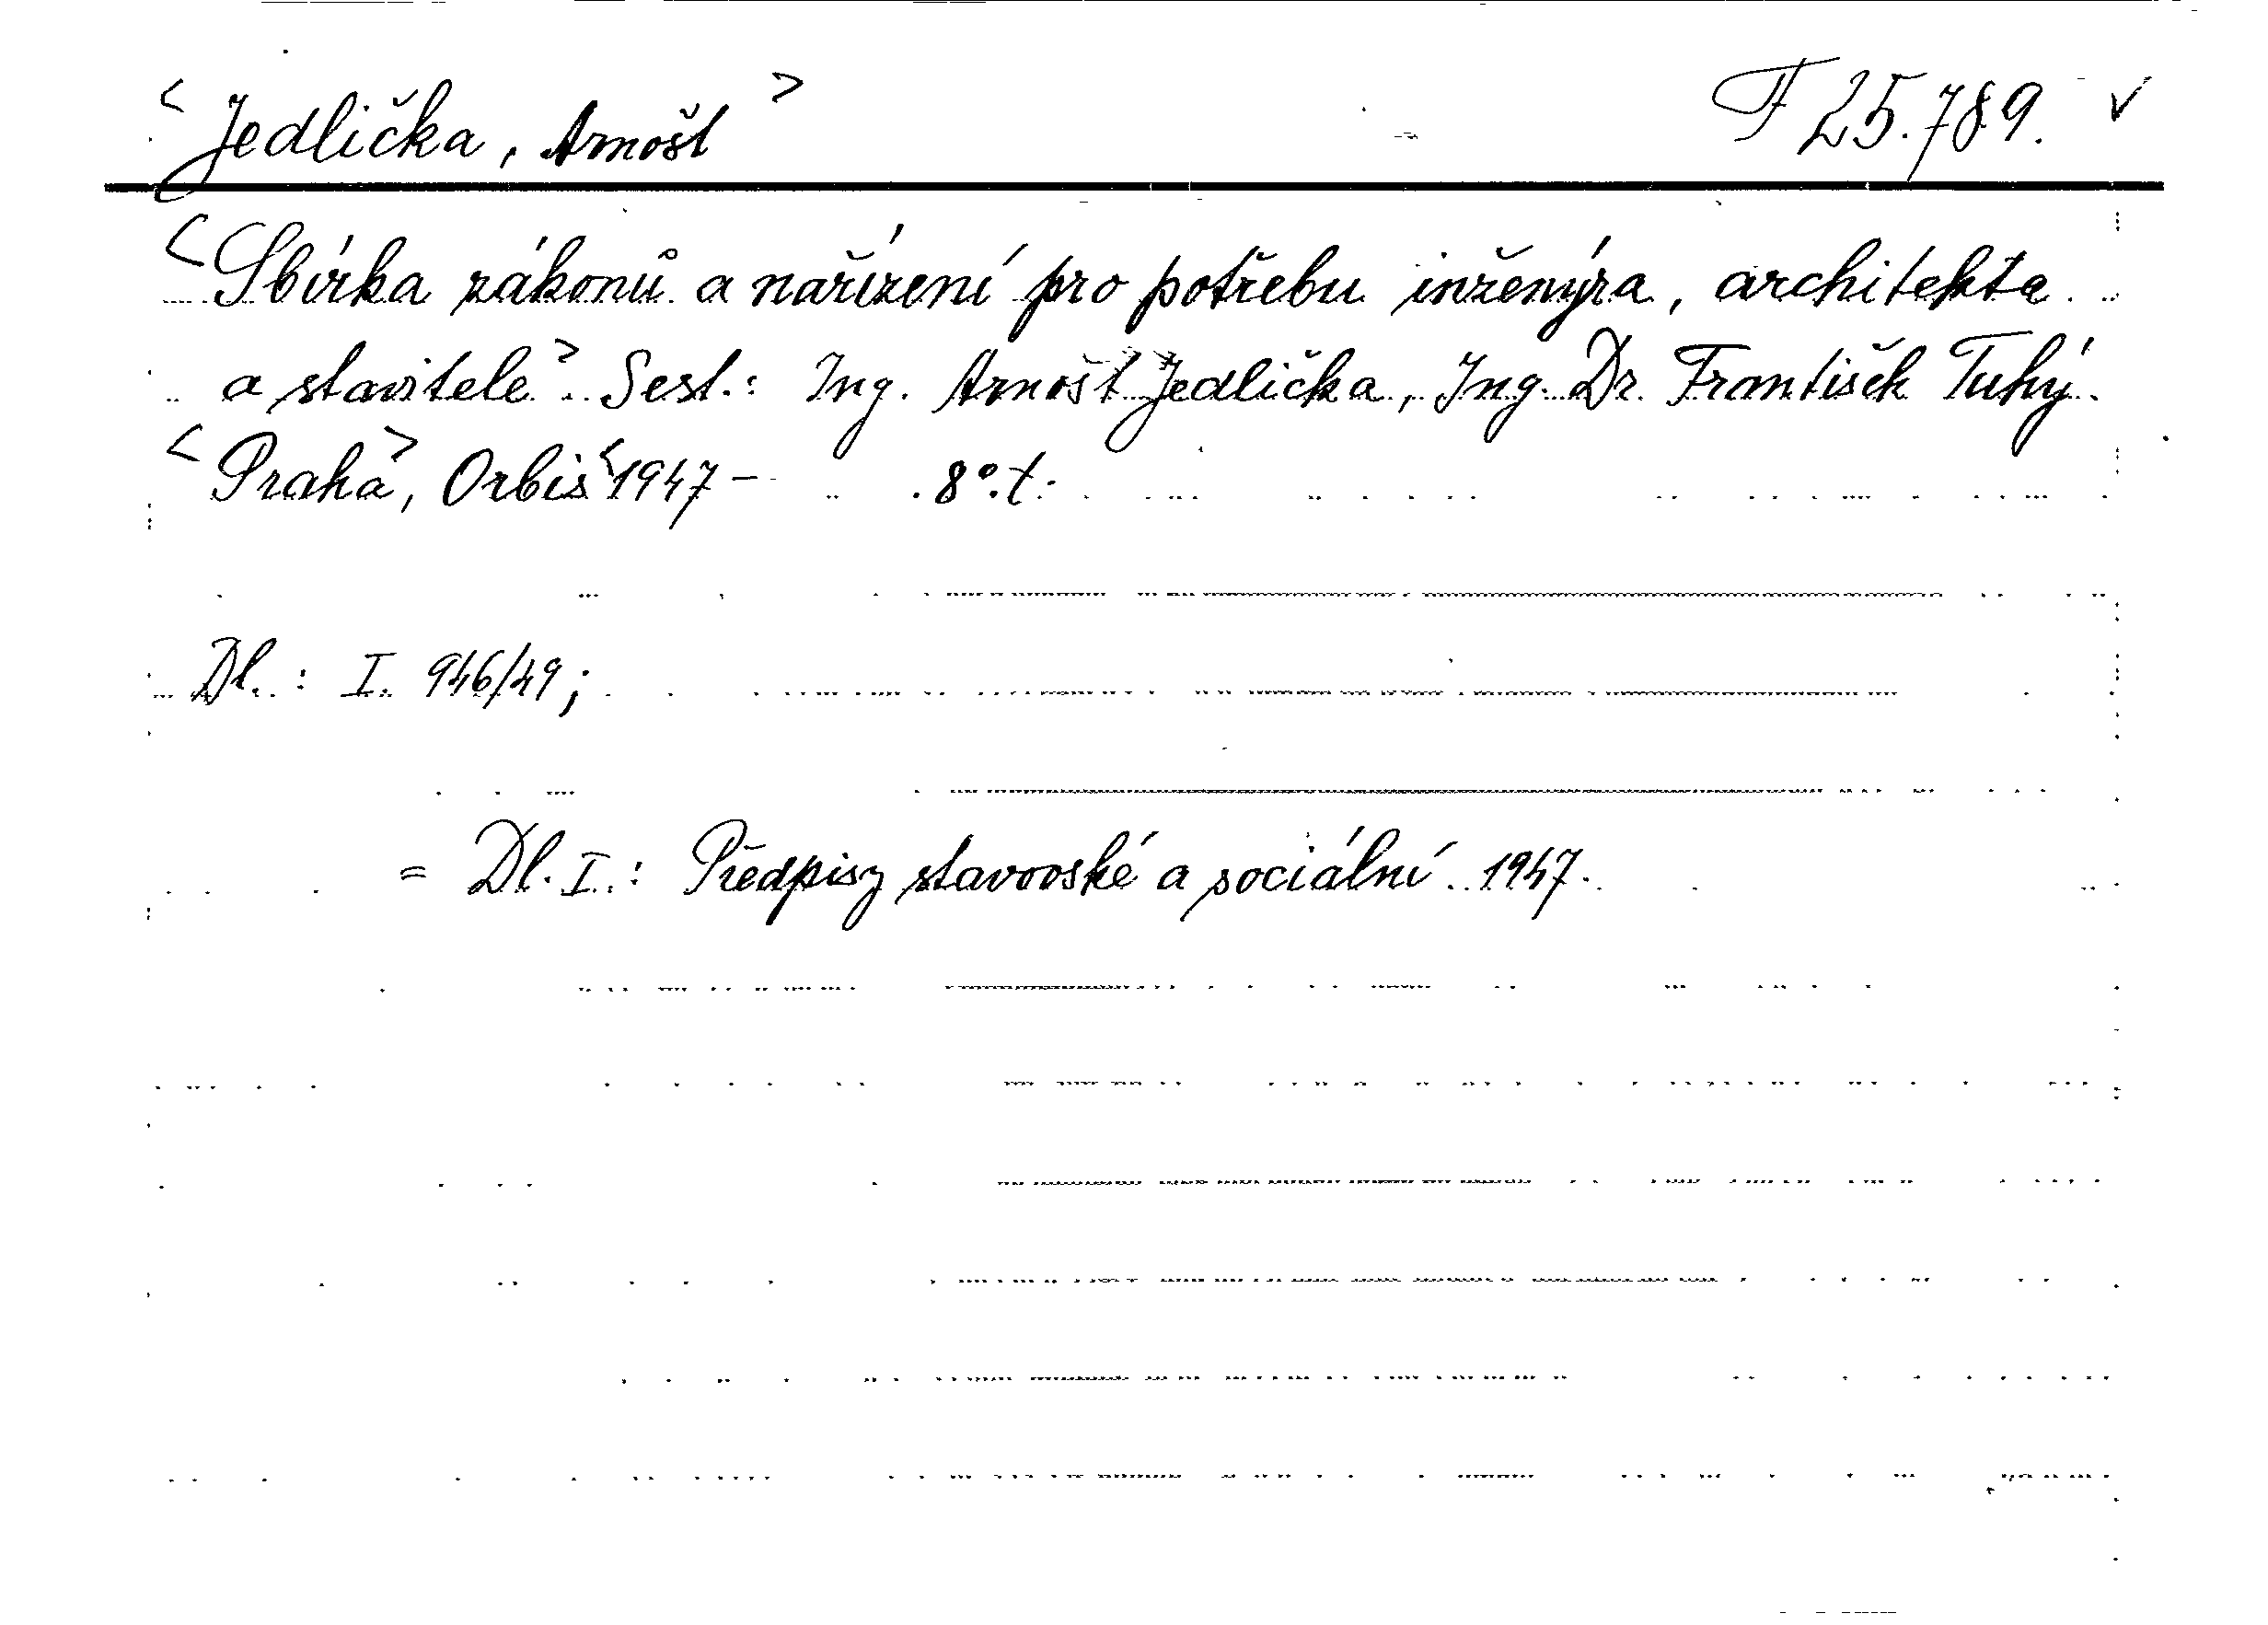 < Jedlička, Arnošt > F 25.789. ✓
< Sbírka zákonů a nařízení pro potřebu inženýra, architekta
a stavitele >. Sest.: Ing. Arnošt Jedlička, Ing. Dr. František Tuhý.
< Praha >, Orbis < 1947 – 8°. t.
Dl.: I. 946/49;
= Dl. I.: Předpisy stavovské a sociální. 1947.